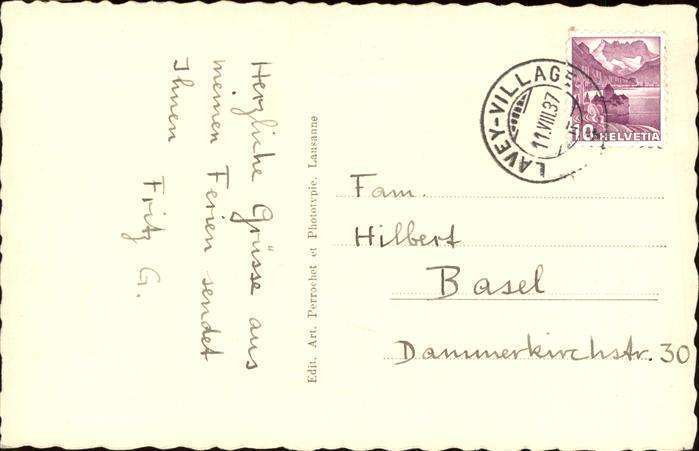 Herzliche Grüsse aus
meinen Ferien sendet
Ihnen
Fritz G.
Edit. Art. Perrochet et Phototypie, Lausanne
LAVEY-VILLAGE
11.VIII.37
10 HELVETIA
Fam.
Hilbert
Basel
Dammerkirchstr. 30